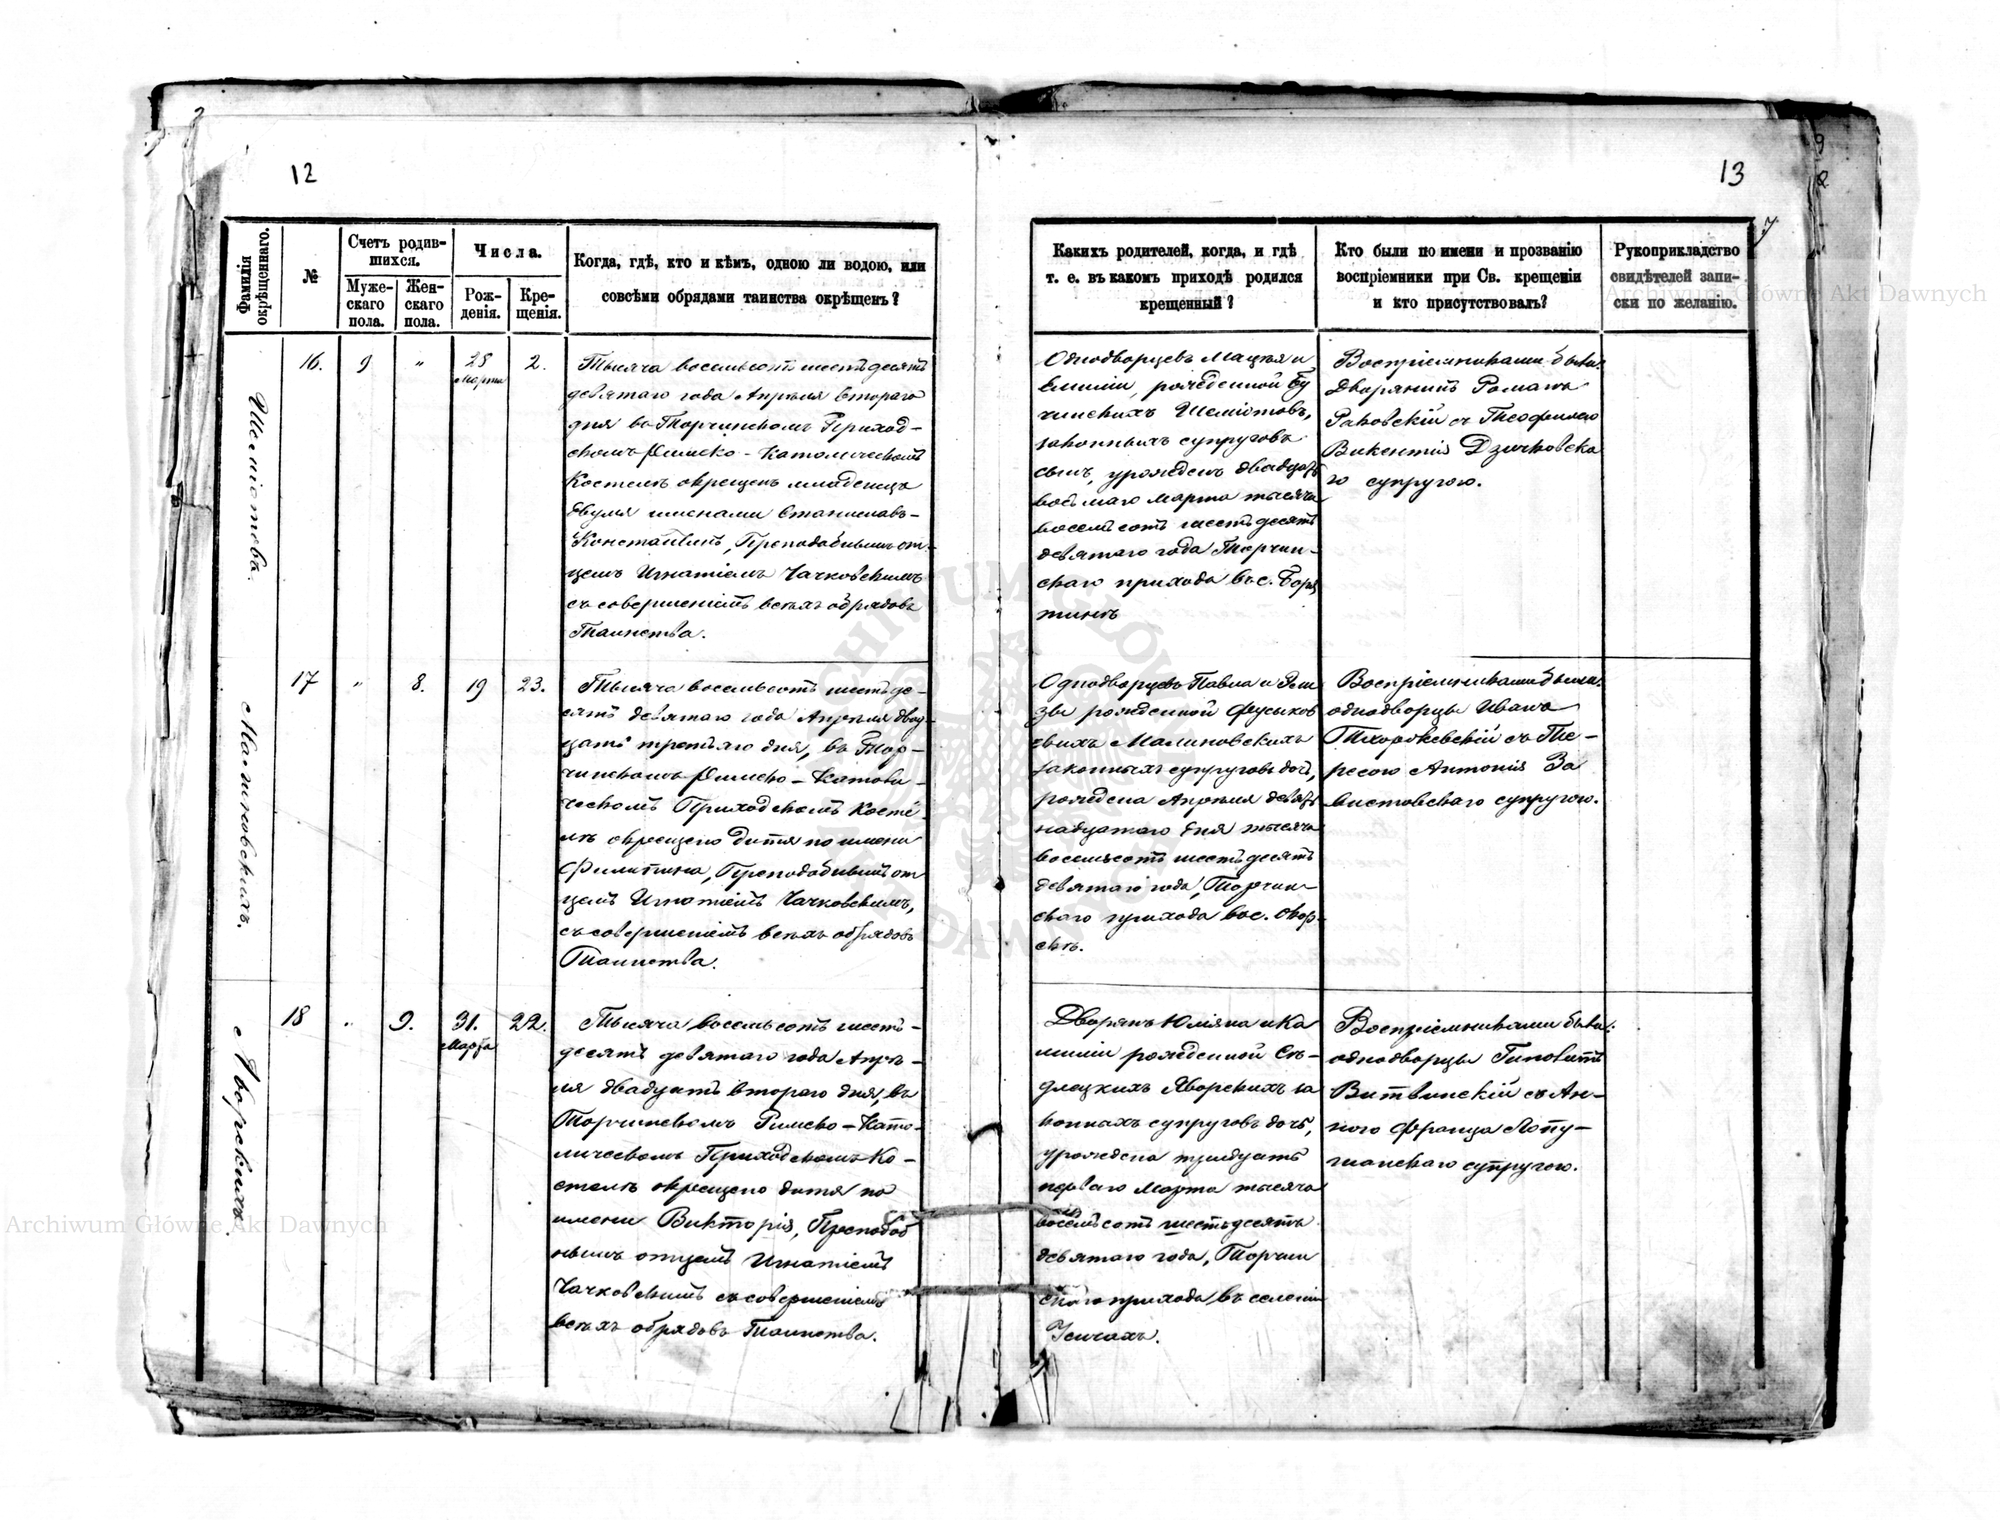 12
Фамилія окрѣщеннаго.
№
Счетъ родив-
шихся.
Муже-
скаго
пола.
Жен-
скаго
пола.
Числа.
Рож-
денія.
Кре-
щенія.
Когда, гдѣ, кто и кѣмъ, одною ли водою, или
совсѣми обрядами таинства окрѣщенъ?
16.
9
"
Марта
2.
Тысяча восемьсотъ шестьдесятъ
девятаго года Апрѣля втораго
дня въ Торчинскомъ Приход-
скомъ Римско-Католическомъ
Костелѣ окрещенъ младенецъ
двумя именами Станиславъ-
Константинъ, Преподобнымъ от-
цемъ Игнатіемъ Чачковскимъ
съ совершеніемъ всѣхъ обрядовъ
Таинства.
Малиновскихъ.
17
"
8.
19
23.
Тысяча восемьсотъ шестьде-
сятъ девятаго года Апрѣля двад-
цать третьяго дня, въ Тор-
чинскомъ Римско-Катали-
ческомъ Приходскомъ Косте-
лѣ окрещено дитя по имени
Преподобнымъ от
цемъ Игнатіемъ Чачковскимъ,
съ совершеніемъ всѣхъ обрядовъ
Таинства.
Яворскихъ.
18
"
9.
31.
Марта
22.
Тысяча восемьсотъ шесть-
десятъ девятаго года Апрѣ-
ля двадцать втораго дня, въ
Торчинскомъ Римско-Като-
лическомъ Приходскомъ Ко-
стелѣ окрещено дитя по
имени Викторія, Преподоб
нымъ отцемъ Игнатіемъ
Чачковскимъ съ совершеніемъ
всѣхъ обрядовъ Таинства.
13
Какихъ родителей, когда, и гдѣ
т. е. въ какомъ приходѣ родился
крещенный?
Кто были по имени и прозванію
воспріемники при Св. крещеніи
и кто присутствовалъ?
Рукоприкладство
свидѣтелей запи-
ски по желанію.
Однодворцевъ Мацѣя и
Емиліи, рожденной Бу
чинскихъ
законныхъ супруговъ
сынъ, урожденъ двадцать
восьмаго Марта тысяча
восемьсотъ шестьдесятъ
девятаго года Торчин-
скаго прихода въ с. Боря
тинѣ
Воспріемниками были:
Дворянинъ Романъ
Раковскій съ Теофилею
Викентія Дзичковска
го супругою.
Однодворцевъ Павла и Эли
зы рожденной
Малиновскихъ
законныхъ супруговъ дочь,
рождена Апрѣля девят
надцатаго дня тысяча
восемьсотъ шестьдесятъ
девятаго года, Торчин-
скаго прихода въ с.
Воспріемниками были:
однодворцы Иванъ
съ Те-
ресою Антонія За
супругою.
Дворянъ Юліяна и Ка
миліи рожденной Сѣ-
длецкихъ Яворскихъ за
конныхъ супруговъ дочь,
урождена тридцать
перваго Марта тысяча
восемьсотъ шестьдесятъ
девятаго года, Торчин
скаго прихода въ селеніи
Усичахъ.
Воспріемниками были:
однодворцы
Витвинскій съ Ан-
ною Франца Лопу-
шанскаго супругою.
Archiwum Główne Akt Dawnych
Archiwum Główne Akt Dawnych